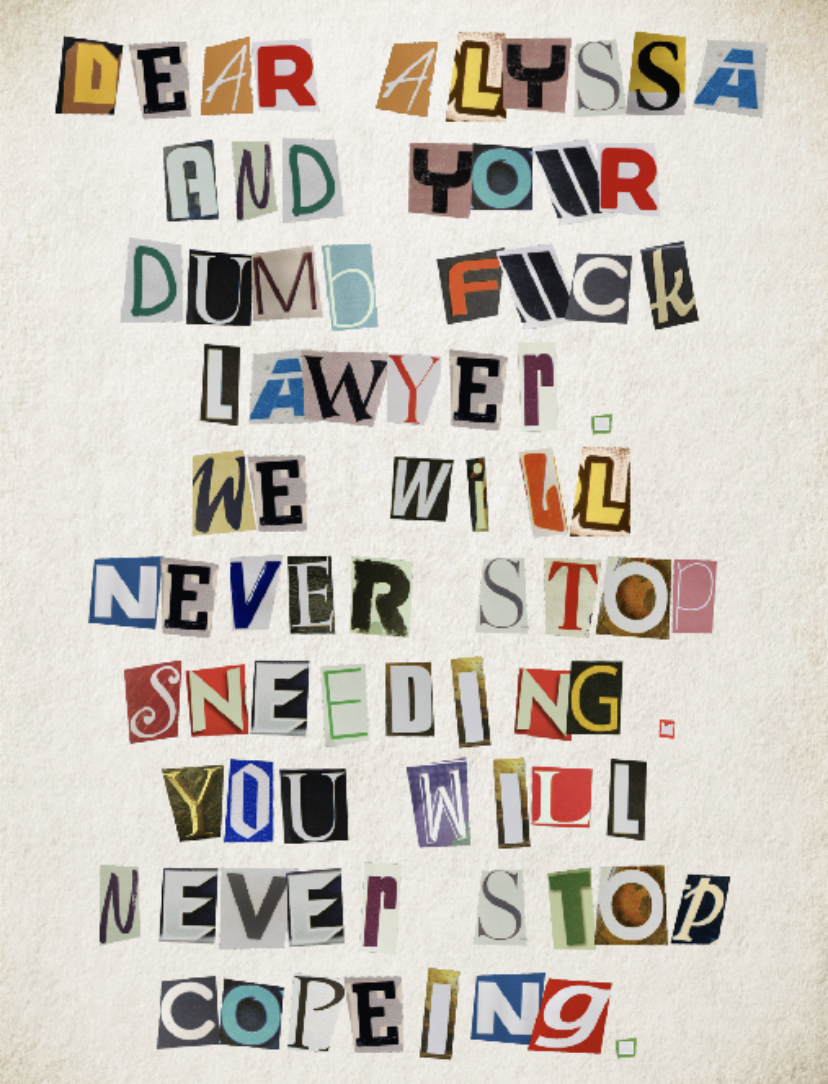 DEAR ALYSSA
AND YOUR
DUMb FUCk
LAWYEr.
WE WiLL
NEVER STOP
SNEEDING.
YOU WILL
NEVEr STOP
COPEINg.